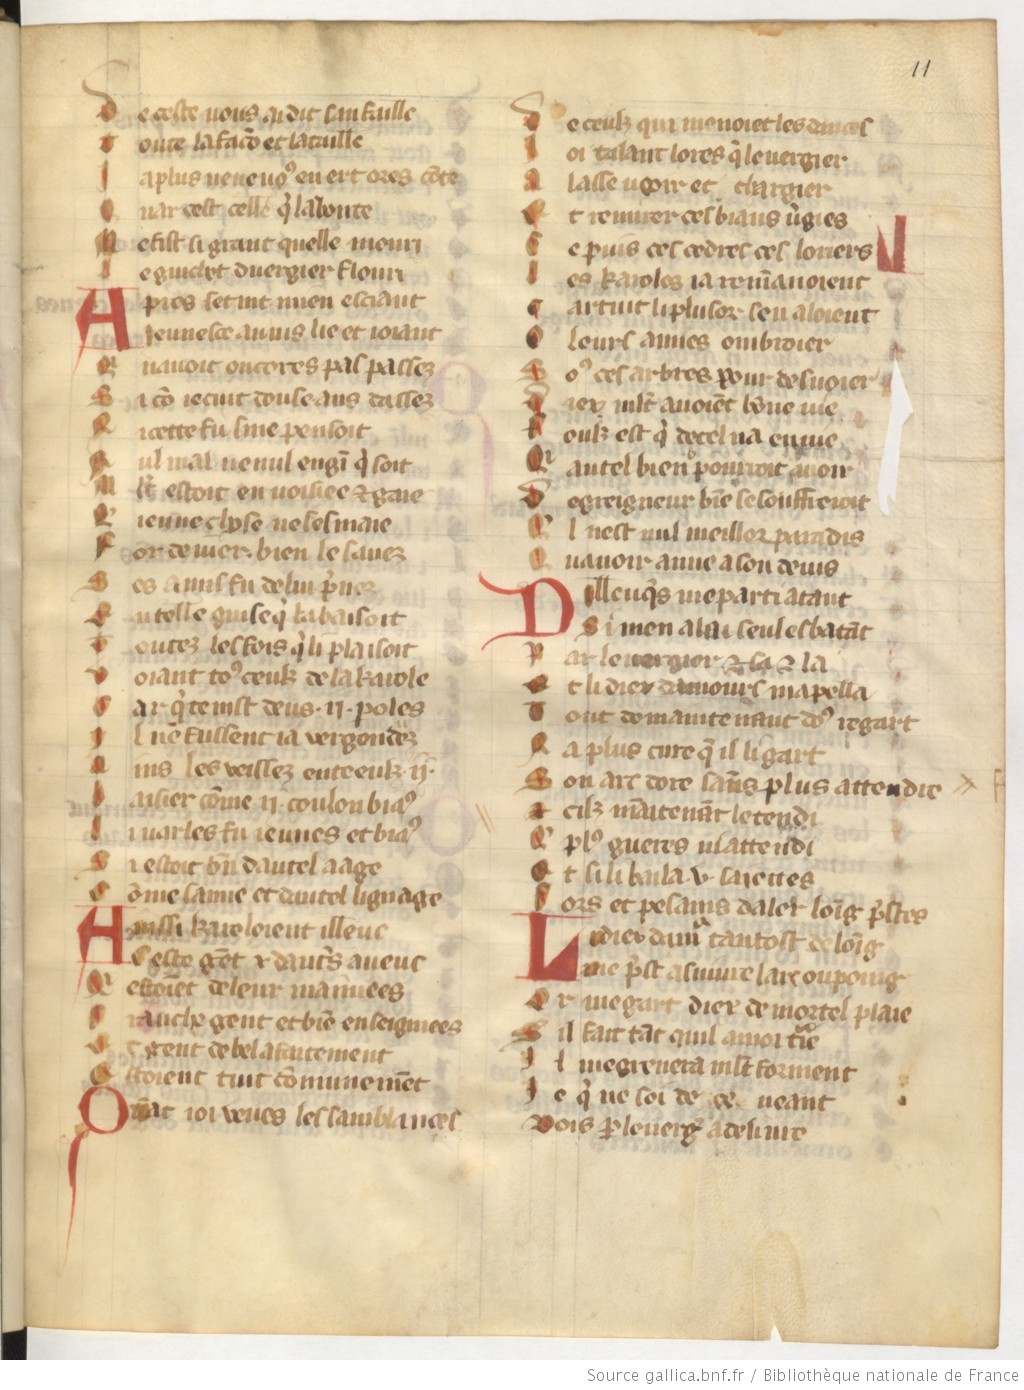 11
De ceste vous ai dit san faille
Toute la facō et la taille
Ja plus neveuꝯ en ert ores cōte
Car cest celle q̄ la bonte
Me fist si grant quelle mouri
Le guichet du vergier flouri
Apres se tint mien esciant
Jeunesce au vis lie et ioiant
Q navoit oncores pas passez
Si cō ie cuit douse ans dassez
Nicette fu si ne pensoit
Nul mal ne nul engī q̄ soit
Mlt estoit envoisiee ⁊ gaie
Q ieune chose ne sesmaie
For de iuer bien le savez
Ses amis fu de lui p̄vez
En telle guise q̄l la baisoit
Toutez les fois q̄ li plaisoit
Voiant toꝰ ceulx de la karole
Car q̄ tenist deus ·ij· poles
Il ne fussent ia vergondez
Ains les veissez enteeulx ·ij·
Baisier cōme ·ij· coulonbiaꝰ
Li varles fu ieunes et biaꝰ
Si estoit bn̄ dautel aage
Cōme samie et dautel lignage
Anssi karoloient illeuc
Ceste gēt ⁊ dautr̄s aveuc
Q estoiēt de leur mainnees
Franche gent et biē enseignees
Et gent de bel afaitement
Estoient tuit cōmunemēt
Quāt ioi veues les samblances
De ceulx qui menoiet les dances
Joi talant lores q̄ le vergier
Alasse veoir et chargier
Et remirer ces biaus v̄giers
Ces puis ces cedres ces loriers
Les karoles ia remanoient
Car tuit li plusor sen aloient
O leurs amies ombroier
Soꝰ ces arbres pour desvoier
Diex mlt avoiēt bōne vie
Foulx est q̄ de cel na envie
Q autel bien pourroit avoir
De greigneur biē se soufferroit
Il nest nul meillor paradis
Qavoir amie a son devis
Dilleuqs me parti atant
Si men alai seul esbatāt
Par le vergier ⁊ sa ⁊ la
Et li diex damours mapella
Tout demaintenant doꝰ regart
Na plus cure q̄ il li gart
Son arc dore sans plus attendre
Et cilz maītenāt le tendi
Q plꝰ gueres ni attendi
Et si li baila ·v· saiettes
Fors et pesans daler loīg p̄stes
Li diex damꝰ tantost de loīg
Me p̄st a suivre larc ou poing
Or me gart diex de mortel plaie
Sil fait tāt quil a moi traie
Il me grevera mlt forment
Je q̄ ne soi de ce neant
Vois p̄ le verḡ a delivre
Source gallica.bnf.fr / Bibliothèque nationale de France